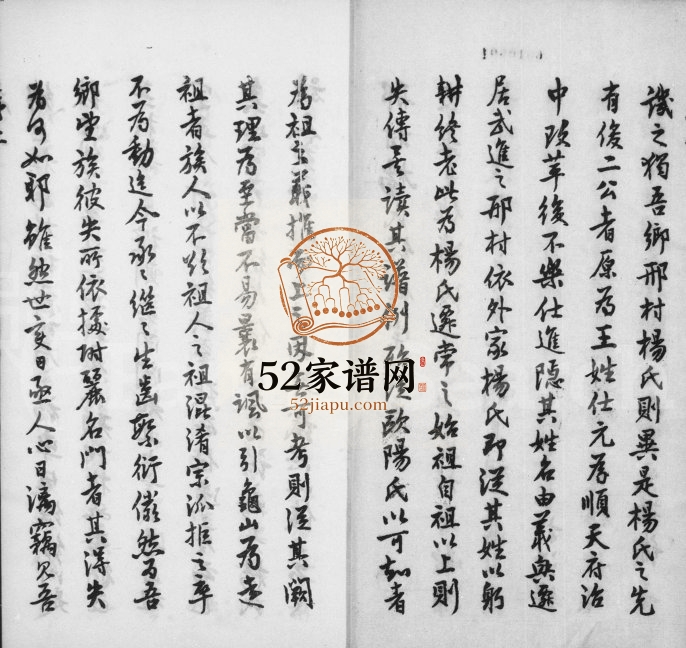 譏之獨吾鄉邢村楊氏則異是楊氏之先
有俊二公者原為王姓仕元為順天府治
中改革後不樂仕進隱其姓名由義興遷
居武進之邢村依外家楊氏即從其姓以躬
耕終老此為楊氏遷常之始祖自祖以上則
失傳 讀其譜例 歐陽氏以可知者
為祖之義推 上 考則從其闕
其理為至當不易曩有諷以引龜山為遠
祖者族人以不欲祖人之祖混淆宗派拒之卒
不為動迄今承承繼繼生齒繁衍儼然為吾
鄉望族彼失所依據附麗名門者其得失
為何如耶雖然世變日亟人心日漓竊見吾
52家谱网
52jiapu.com